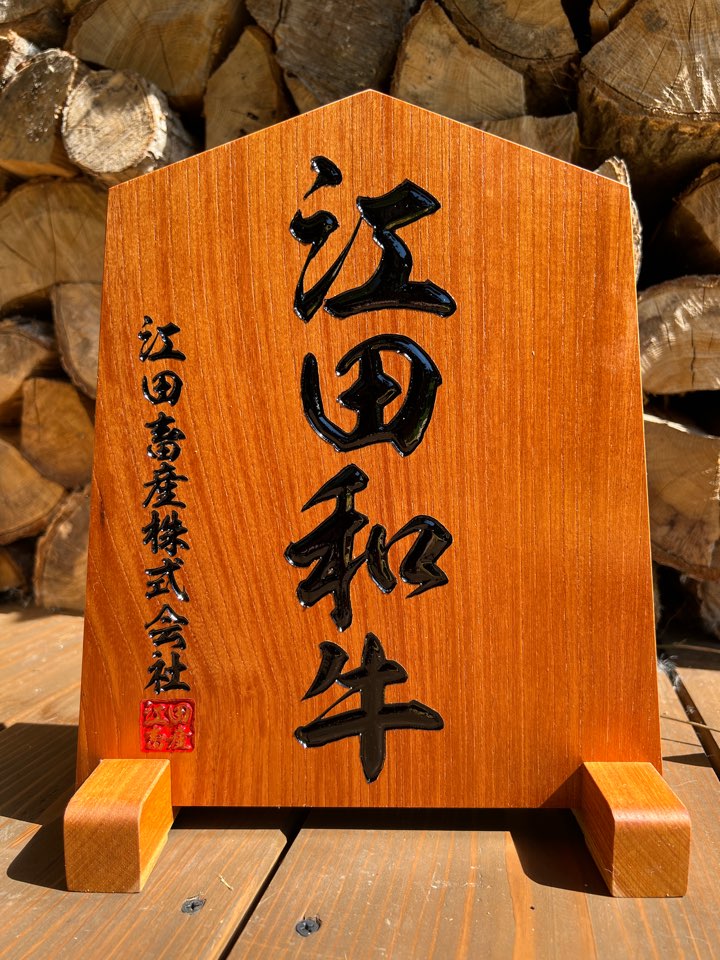 江田和牛
江田畜産株式会社
江田
畜産